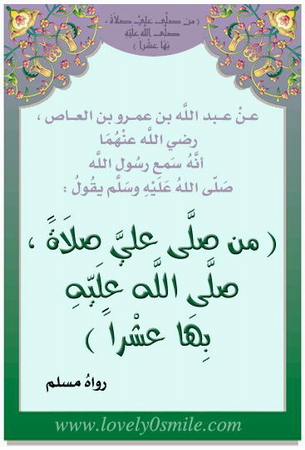 ( من صلَّى عليَّ صلاَةً ،
صلَّى الله عليْهِ
بِهَا عشْراً )
عنْ عبد اللَّه بن عمرو بن العاص ،
رضي اللَّه عنْهُمَا
أنَّهُ سَمع رسُول اللَّه
صَلّى اللهُ عَلَيْهِ وسَلَّم يقُولُ :
( من صلَّى عليَّ صلاَةً ،
صلَّى الله عليْهِ
بِهَا عشْراً )
رواهُ مسلم
www.lovely0smile.com